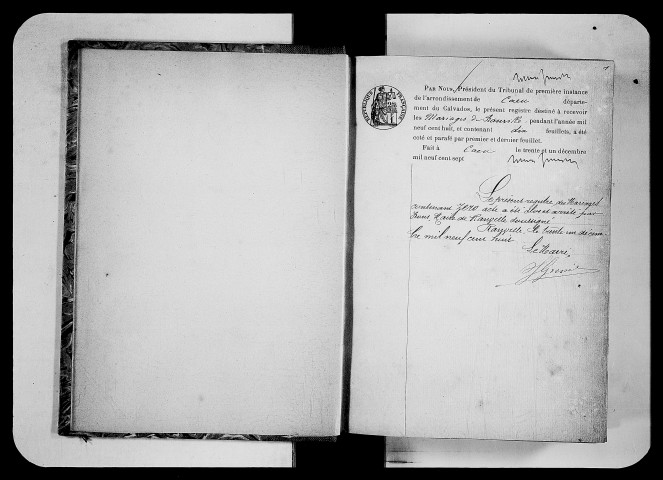 1
PAR NOUS, Président du Tribunal de première instance
de l'arrondissement de Caen départe-
ment du Calvados, le présent registre destiné à recevoir
les Mariages de pendant l'année mil
neuf cent huit, et contenant dix feuillets, a été
coté et parafé par premier et dernier feuillet.
Fait à Caen le trente et un décembre
mil neuf cent sept
RÉPUBLIQUE FRANÇAISE
Le présent registre des Mariages
contenant Zéro acte a été clos et arrêté par
Nous, Maire de soussigné
le trente un décem
bre mil neuf cent huit
Le Maire,